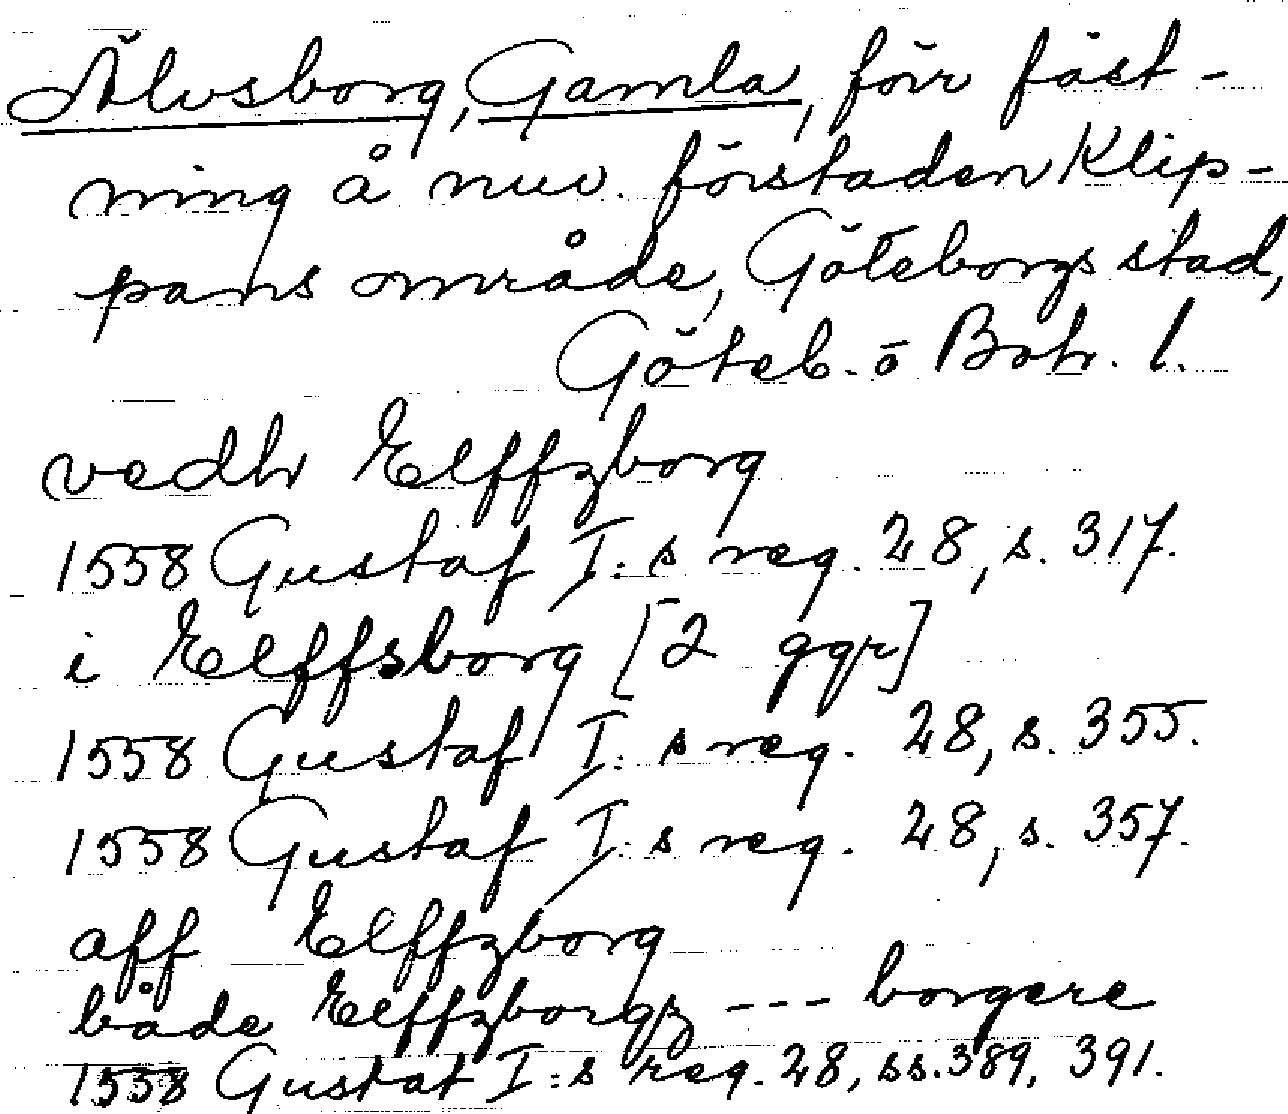 Älvsborg, Gamla, förr fäst-
ning å nuv. förstaden Klip-
pans område, Göteborgs stad,
Göteb. o Boh. l.
vedh Elffzborg
1558 Gustaf I:s reg. 28, s. 317.
i Elffsborg [2 ggr]
1558 Gustaf I:s reg. 28, s. 355.
1558 Gustaf I:s reg. 28, s. 357.
aff Elffzborg
både Elffzborgz --- borgere
1558 Gustaf I:s reg. 28, ss. 389, 391.